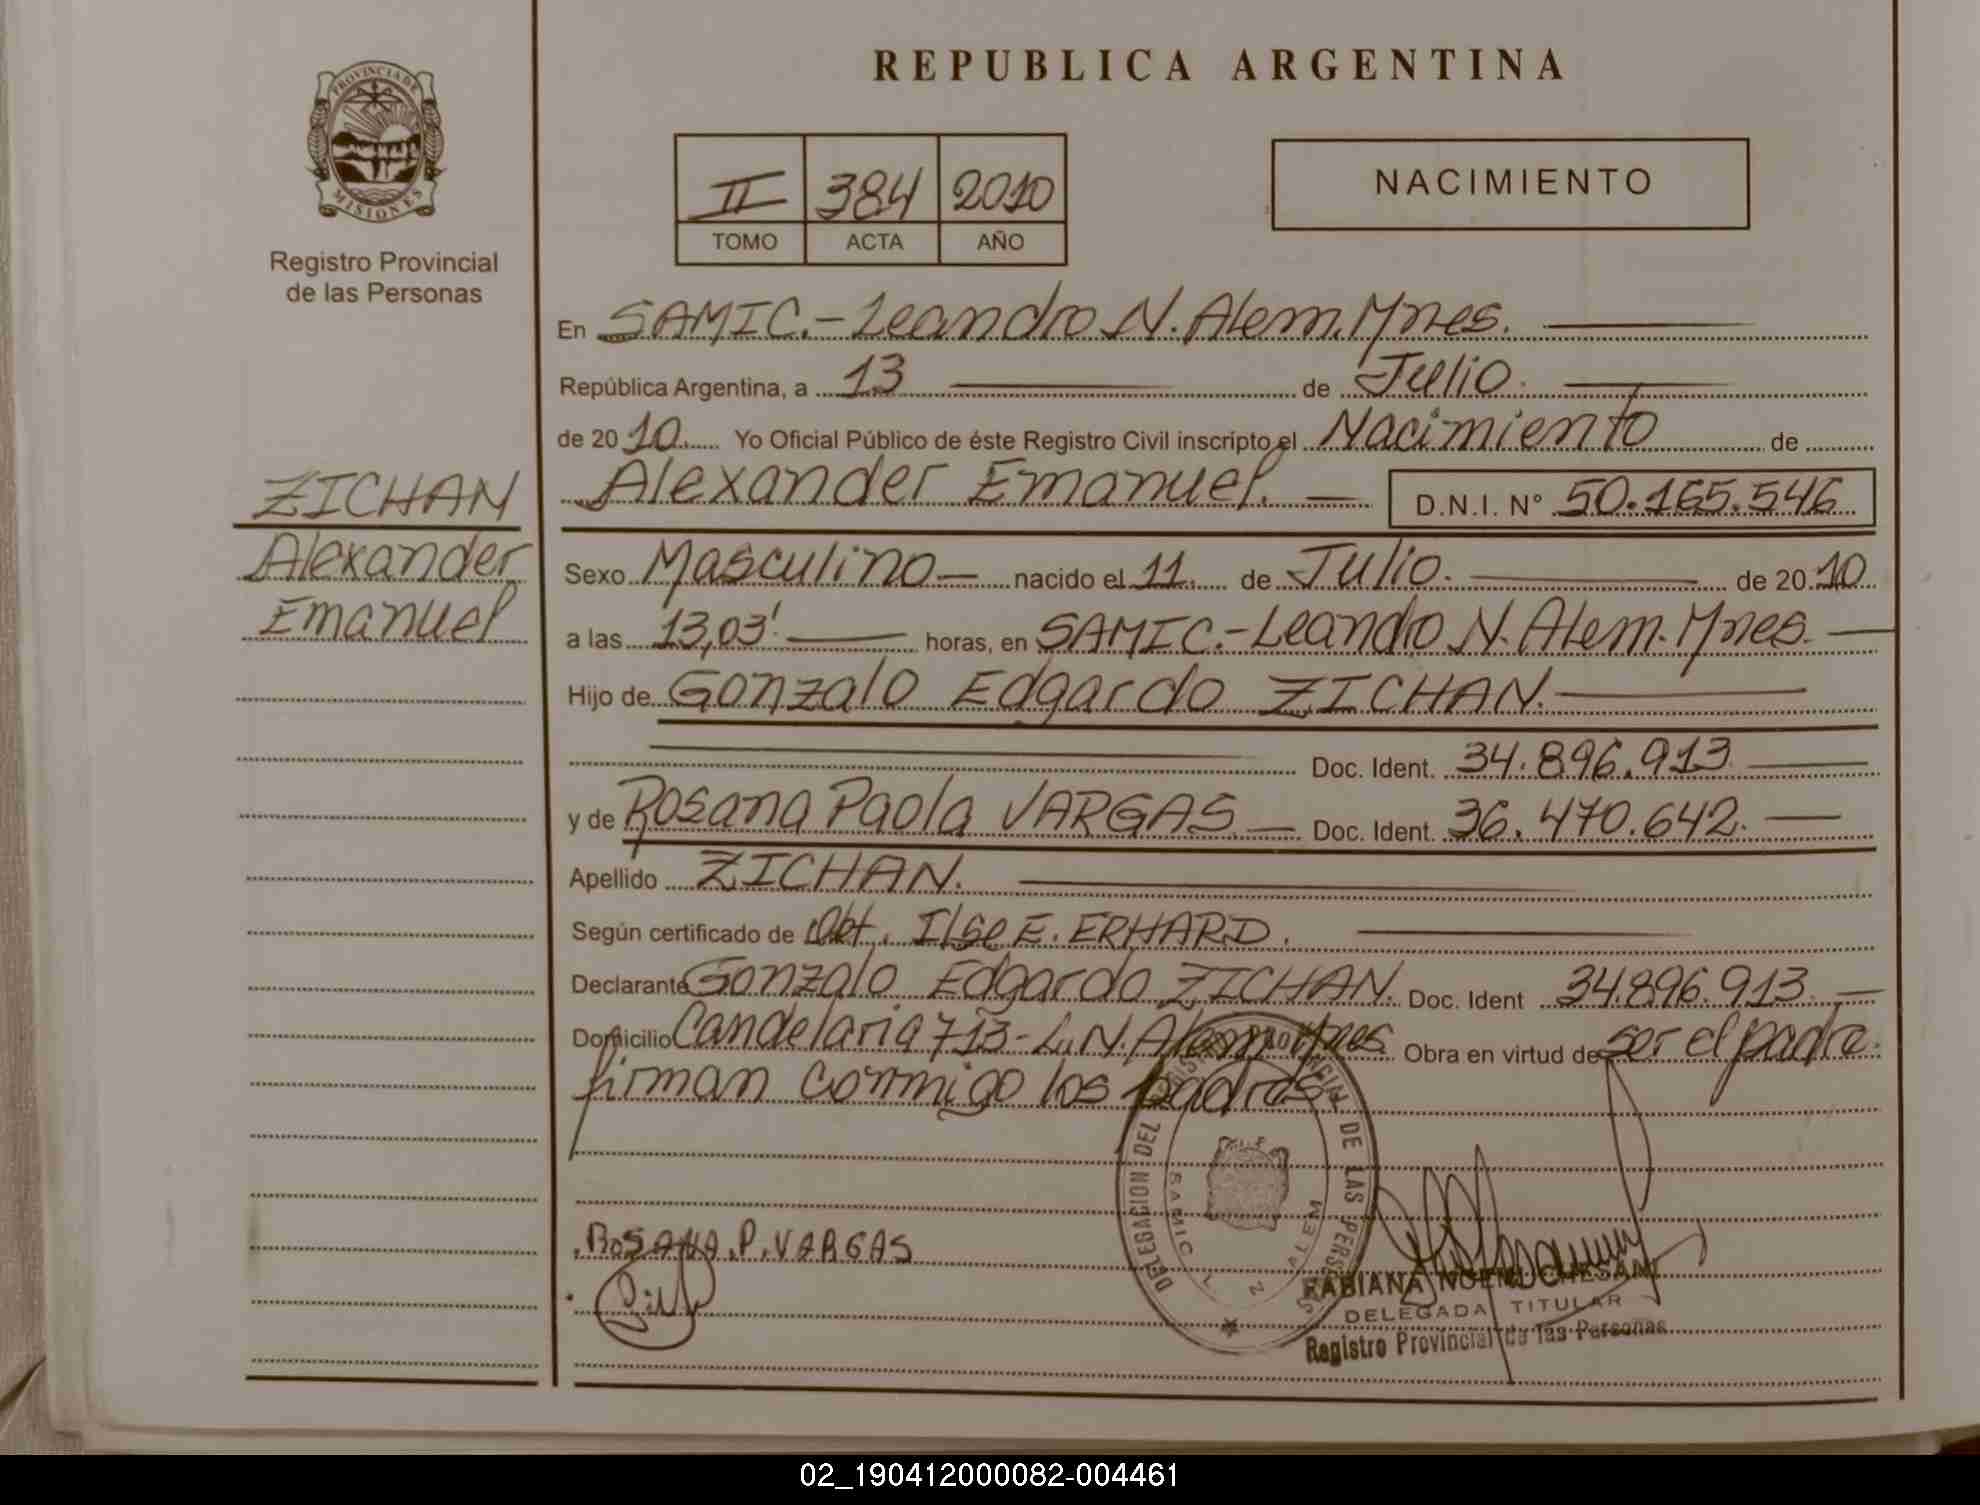 REPUBLICA ARGENTINA
PROVINCIA DE
MISIONES
Registro Provincial
de las Personas
II 384 2010
TOMO ACTA AÑO
NACIMIENTO
En SAMIC.-Leandro N. Alem. Mnes.
República Argentina, a 13 de Julio.
de 2010. Yo Oficial Público de éste Registro Civil inscripto el Nacimiento de
Alexander Emanuel. D.N.I. Nº 50.165.546
ZICHAN
Alexander
Emanuel
Sexo Masculino nacido el 11. de Julio. de 2010
a las 13,03'. horas, en SAMIC.-Leandro N. Alem. Mnes.
Hijo de Gonzalo Edgardo ZICHAN.
Doc. Ident. 34.896.913
y de Rosana Paola VARGAS Doc. Ident. 36.470.642.
Apellido ZICHAN.
Según certificado de Obt. Ilse E. ERHARD.
Declarante Gonzalo Edgardo ZICHAN. Doc. Ident 34.896.913
Domicilio Candelaria 713- L.N. Alem Mnes Obra en virtud de ser el padre.
firman conmigo los padres
DELEGACION DEL REGISTRO PROVINCIAL DE LAS PERSONAS
SAMIC L N ALEM
ROSANA.P.VARGAS
FABIANA NOEMI CHESANI
DELEGADA TITULAR
Registro Provincial de las Personas
02_190412000082-004461